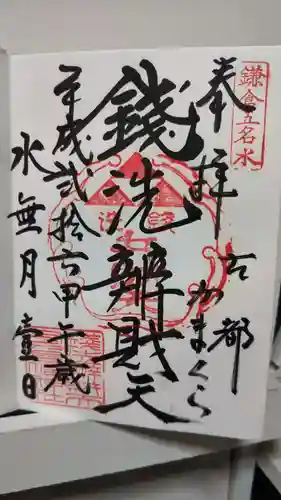 鎌倉五名水
奉拝
古都かまくら
銭洗
銭洗辨財天
平成弐拾六甲午歳
水無月壹日